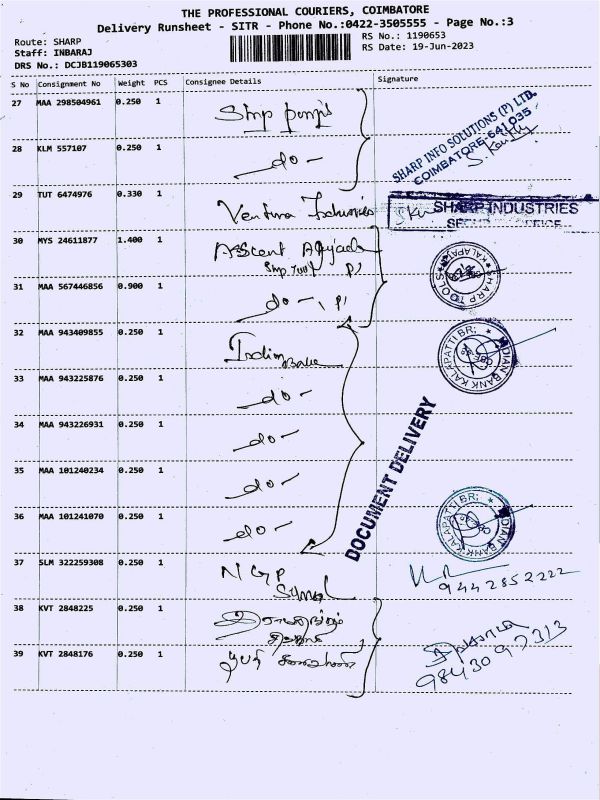 THE PROFESSIONAL COURIERS, COIMBATORE
Delivery Runsheet - SITR - Phone No.:0422-3505555 - Page No.:3
Route: SHARP
RS No.: 1190653
Staff: INBARAJ
RS Date: 19-Jun-2023
DRS No.: DCJB119065303
S No Consignment No Weight PCS Consignee Details Signature
27 MAA 298504961 0.250 1
SHARP INFO SOLUTIONS (P) LTD.
COIMBATORE-641035
28 KLM 557107 0.250 1
do -
29 TUT 6474976 0.330 1
Ventura
SHARP INDUSTRIES
30 MYS 24611877 1.400 1
Ascent
SHARP TOOLS
31 MAA 567446856 0.900 1
do -
32 MAA 943409855 0.250 1
Indian Bank
INDIAN BANK KALAPATTI BR;
33 MAA 943225876 0.250 1
do -
34 MAA 943226931 0.250 1
do -
DOCUMENT DELIVERY
35 MAA 101240234 0.250 1
do -
36 MAA 101241070 0.250 1
do -
INDIAN BANK KALAPATTI BR;
37 SLM 322259308 0.250 1
NGP
9442852222
38 KVT 2848225 0.250 1
39 KVT 2848176 0.250 1
9843097313